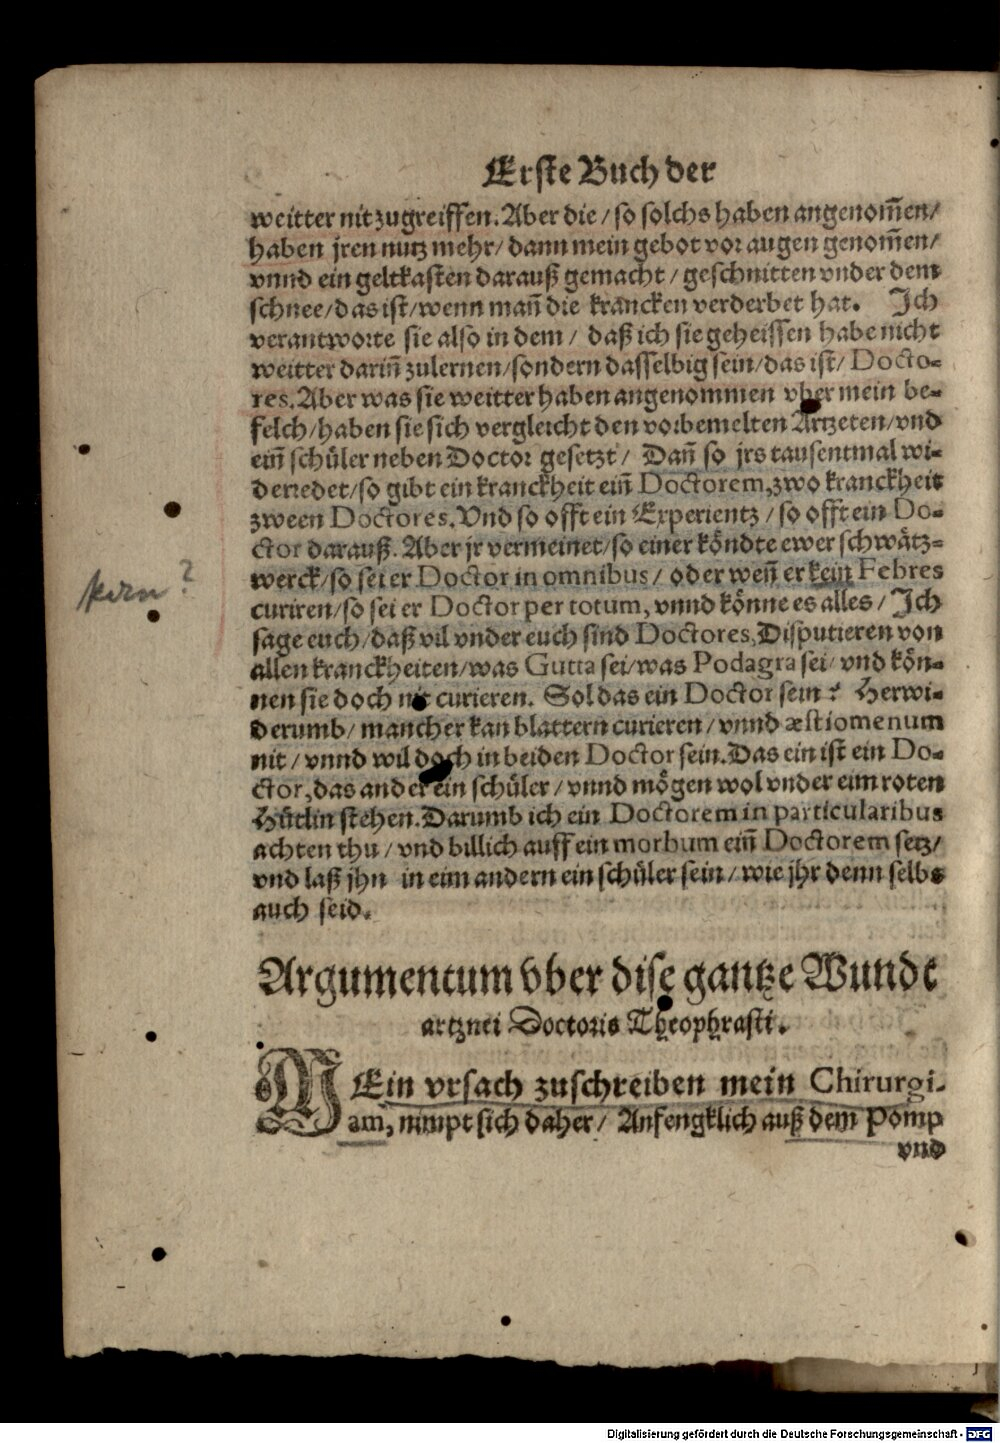 Erste Buch der
weitter nit zugreiffen. Aber die / so solchs haben angenom̃en /
haben jren nutz mehr / dann mein gebot vor augen genom̃en /
vnnd ein geltkasten darauß gemacht / geschnitten vnder dem
schnee / das ist / wenn mañ die krancken verderbet hat. Ich
verantworte sie also in dem / daß ich sie geheissen habe nicht
weitter dariñ zulernen / sondern dasselbig sein / das ist / Docto-
res. Aber was sie weitter haben angenommen vber mein be-
felch / haben sie sich vergleicht den vorbemelten Artzeten / vnd
eiñ schüler neben Doctor gesetzt / Dañ so jrs tausentmal wi-
derredet / so gibt ein kranckheit eiñ Doctorem, zwo kranckheit
zween Doctores. Vnd so offt ein Experientz / so offt ein Do-
ctor darauß. Aber jr vermeinet / so einer köndte ewer schwätz-
werck / so sei er Doctor in omnibus / oder weñ er kein Febres
kern?
curiren / so sei er Doctor per totum, vnnd könne es alles / Ich
sage euch / daß vil vnder euch sind Doctores, Disputieren von
allen kranckheiten / was Gutta sei / was Podagra sei / vnd kön-
nen sie doch nit curieren. Sol das ein Doctor sein? Herwi-
derumb / mancher kan blattern curieren / vnnd æstiomenum
nit / vnnd wil doch in beiden Doctor sein. Das ein ist ein Do-
ctor, das ander ein schüler / vnnd mögen wol vnder eim roten
Hütlin stehen. Darumb ich ein Doctorem in particularibus
achten thu / vnd billich auff ein morbum eiñ Doctorem setz /
vnd laß jhn in eim andern ein schüler sein / wie jhr denn selbs
auch seid.
Argumentum vber dise gantze Wundt
artznei Doctoris Theophrasti.
MEin vrsach zuschreiben mein Chirurgi-
am, nimpt sich daher / Anfengklich auß dem Pomp
vnd
Digitalisierung gefördert durch die Deutsche Forschungsgemeinschaft - DFG